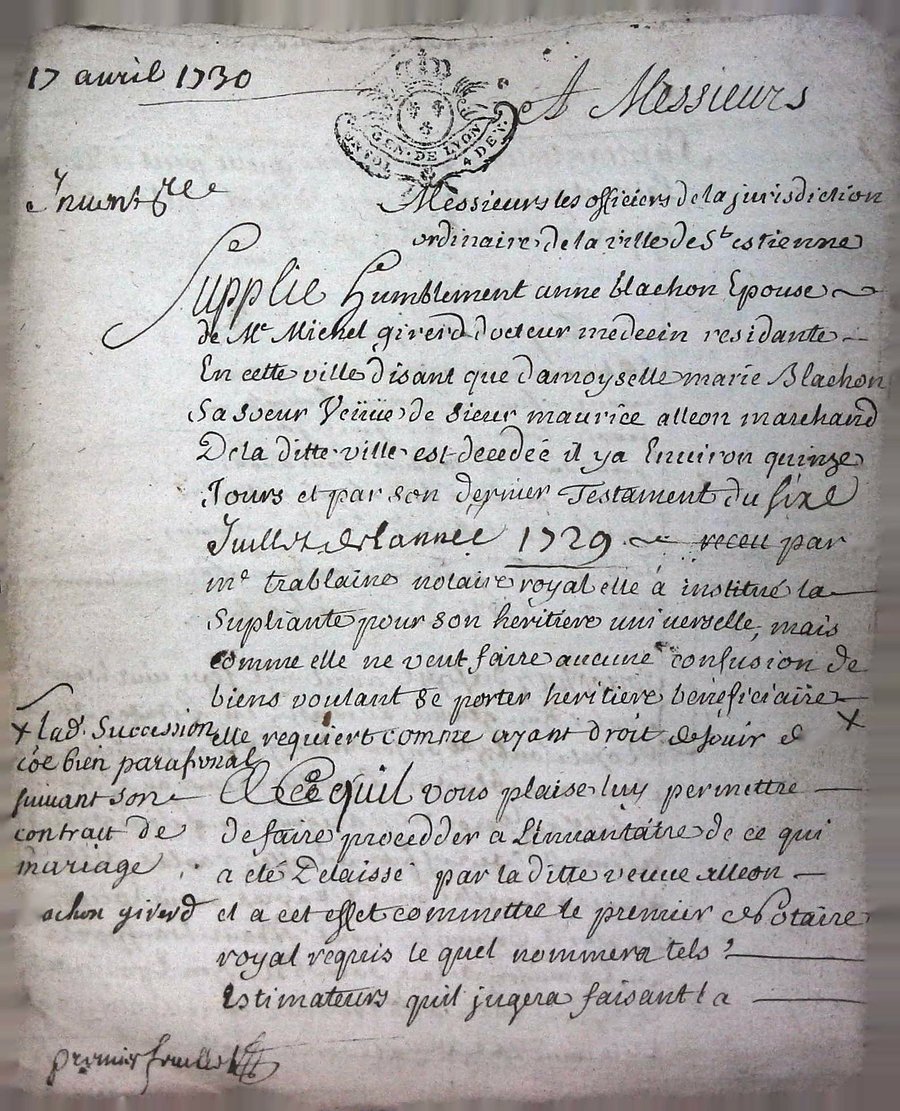 17 avril 1730
GEN. DE LYON
4 DEN.
A Messieurs
Messieurs les officiers de la jurisdiction
ordinaire de la ville de St estienne
Supplie humblement anne blachon Epouse
de Me Michel girerd docteur medecin residante
En cette ville disant que damoyselle marie Blachon
Sa soeur Veüüe de sieur maurice alleon marchand
De la ditte ville est decedéé il ya Environ quinze
Jours et par son dernier Testament du sixe
Juillet de lannee 1729 receu par
me trablaine notaire royal elle à institué la
Supliante pour son héritiere universelle, mais
comme elle ne veut faire aucune confusion de
biens voulant se porter heritiere beneficiaire
elle requiert comme ayant droit de jouir d X
X lad. Succession
côe bien parafrnal
suivant son
contrait de
mariage
achon girerd
A Ce quil vous plaise luy permettre
de faire procedder a Linuantaire de ce qui
a eté Delaissé par la ditte veuue alleon
et a cet effet commettre le premier Notaire
royal requis le quel nommera tels
Estimateurs quil jugera faisant la
premier feuillet